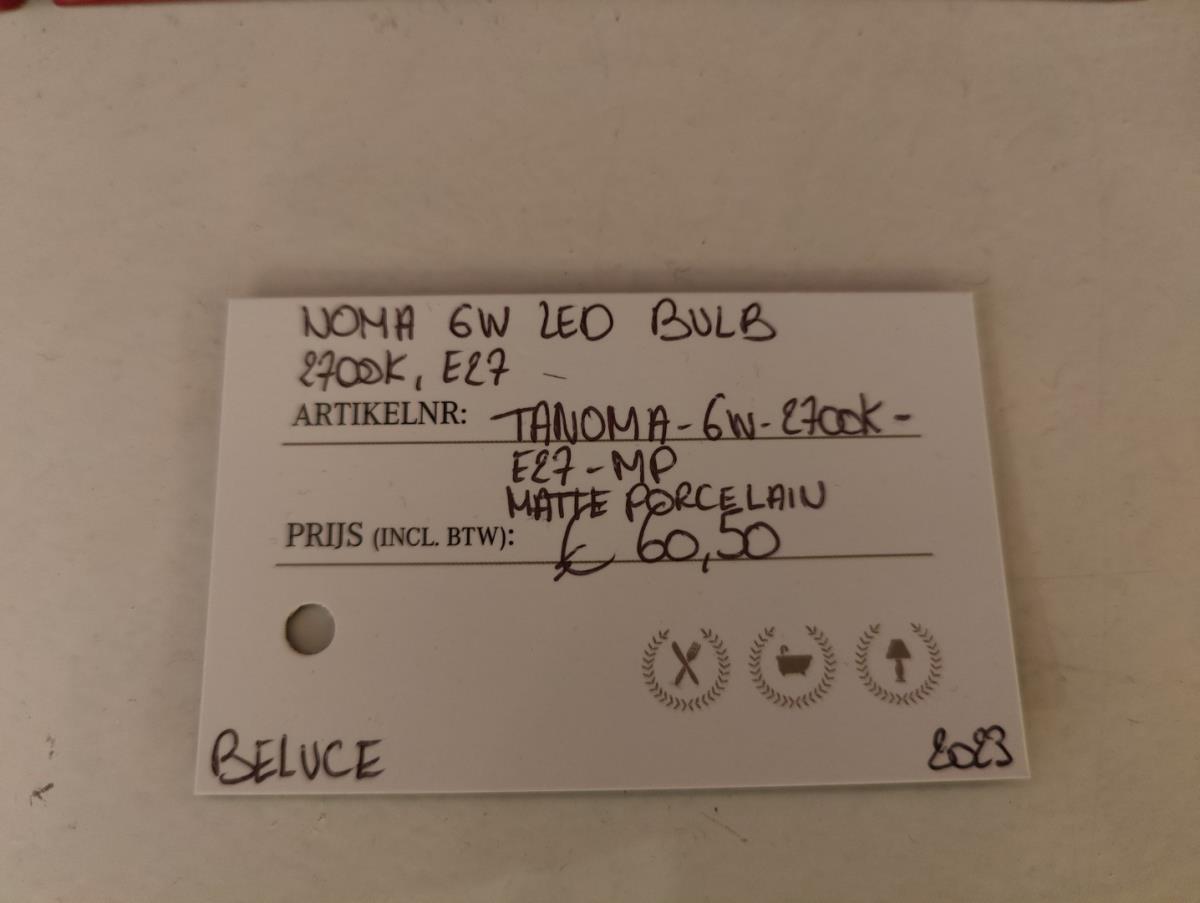 NOMA 6W LED BULB
2700K, E27
ARTIKELNR: TANOMA-6W-2700K-
E27-MP
MATTE PORCELAIN
PRIJS (INCL. BTW): € 60,50
BELUCE 2023